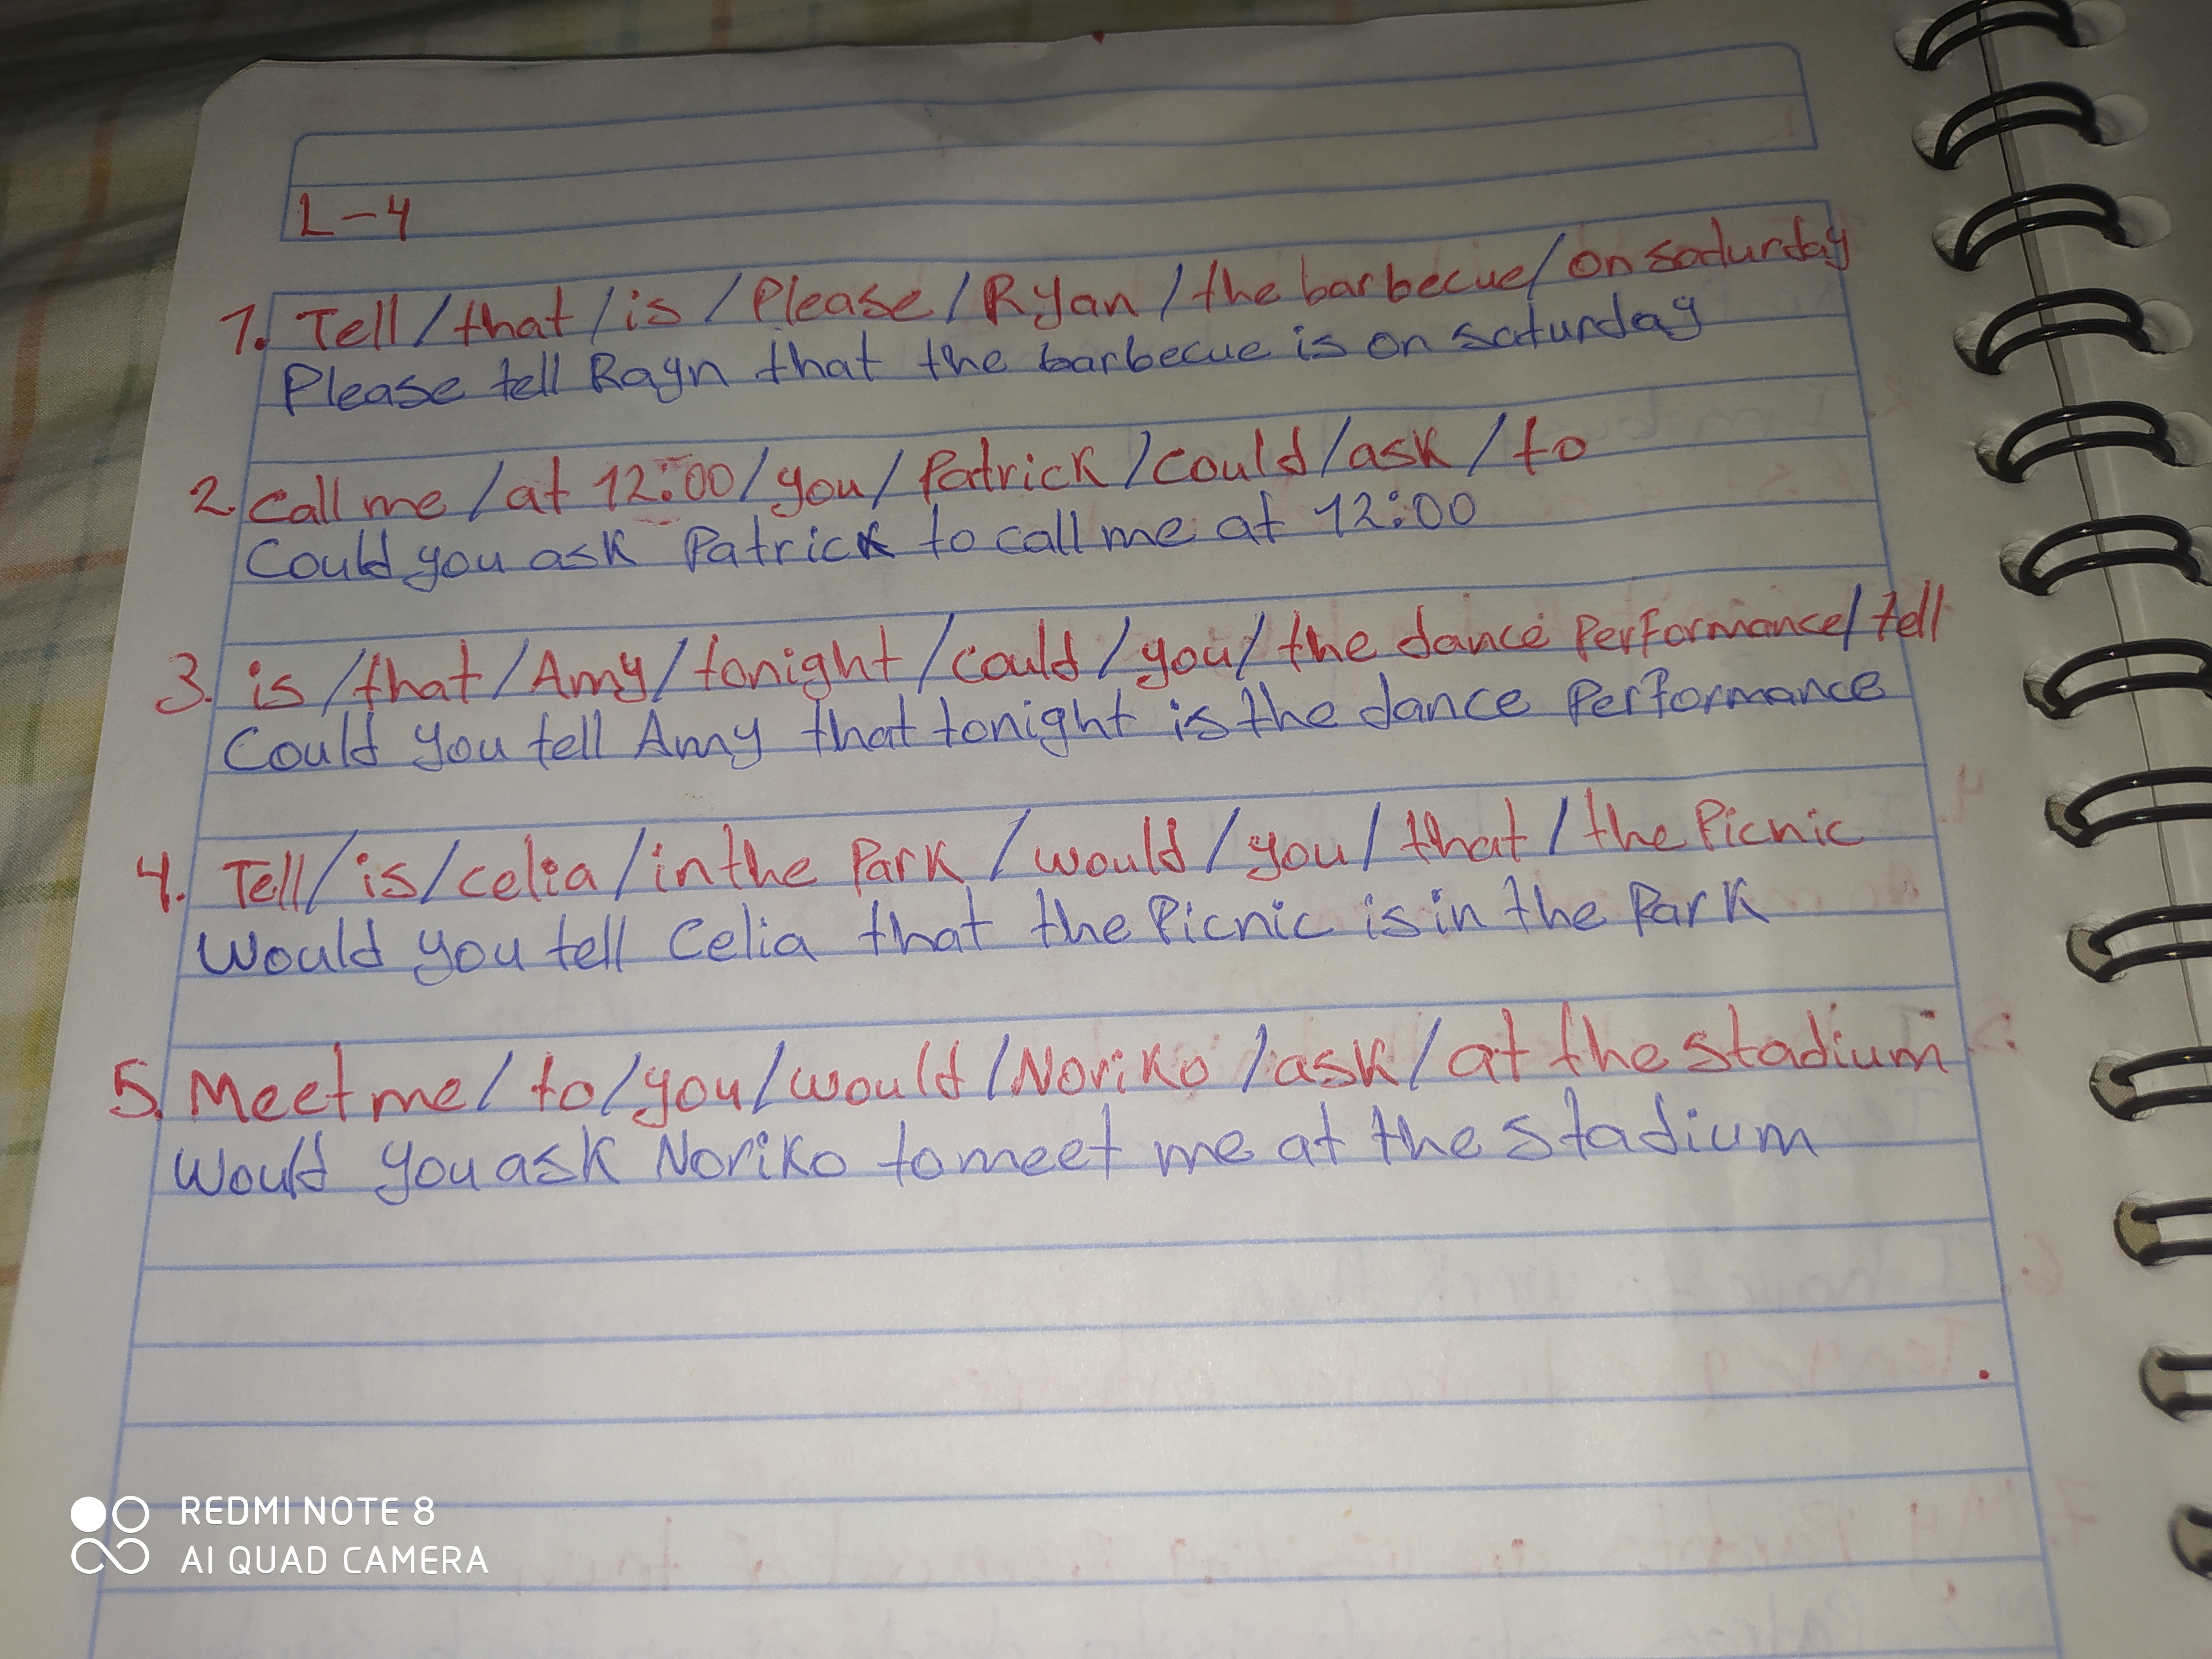 L-4
1. Tell/that/is/Please/Ryan/the barbecue/on saturday
Please tell Rayn that the barbecue is on saturday
2. Call me/at 12:00/you/Patrick/could/ask/to
Could you ask Patrick to call me at 12:00
3. is/that/Amy/tonight/could/you/the dance Performance/tell
Could you tell Amy that tonight is the dance Performance
4. Tell/is/celia/in the Park/would/you/that/the Picnic
Would you tell Celia that the Picnic is in the Park
5. Meet me/to/you/would/Noriko/ask/at the stadium
Would you ask Noriko to meet me at the stadium
REDMI NOTE 8
AI QUAD CAMERA